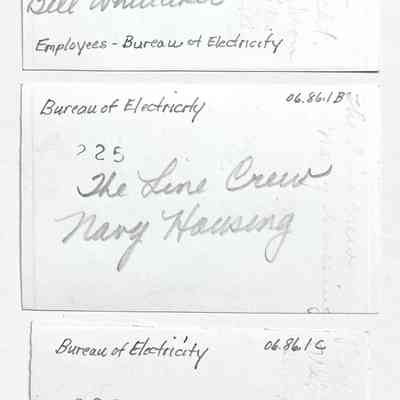 Bill
Employees - Bureau of Electricity
Bureau of Electricity 06.86.1B
225
The Line Crew
Navy Housing
Bureau of Electricity 06.86.1C